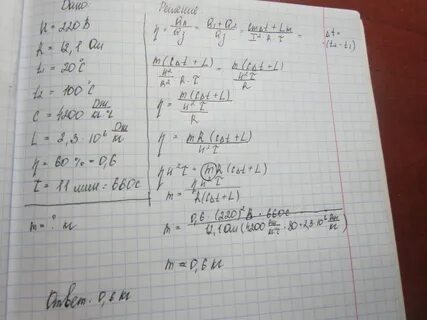 Дано
U = 220 В
R = 12,1 Ом
t₁ = 20°C
t₂ = 100°C
c = 4200 Дж/кг·°C
L = 2,3 · 10⁶ Дж/кг
η = 60 % = 0,6
τ = 11 мин = 660с
m = ? кг
Решение
η = Qп/Qз = (Q₁ + Q₂)/Qз = (cmΔt + Lm)/(I² · R · τ) =
Δt = (t₂ - t₁)
m(cΔt + L)/(U²/R² · R · τ) = m(cΔt + L)/(U² · τ/R)
η = m(cΔt + L)/(U² τ/R)
η = mR(cΔt + L)/(U² τ)
ηU²τ = mR(cΔt + L)
m = ηU²τ/R(cΔt + L)
m = 0,6 · (220)² В · 660с/12,1 Ом (4200 Дж/кг·°C · 80 + 2,3 · 10⁶ Дж/кг)
m ≈ 0,6 кг
Ответ: 0,6 кг